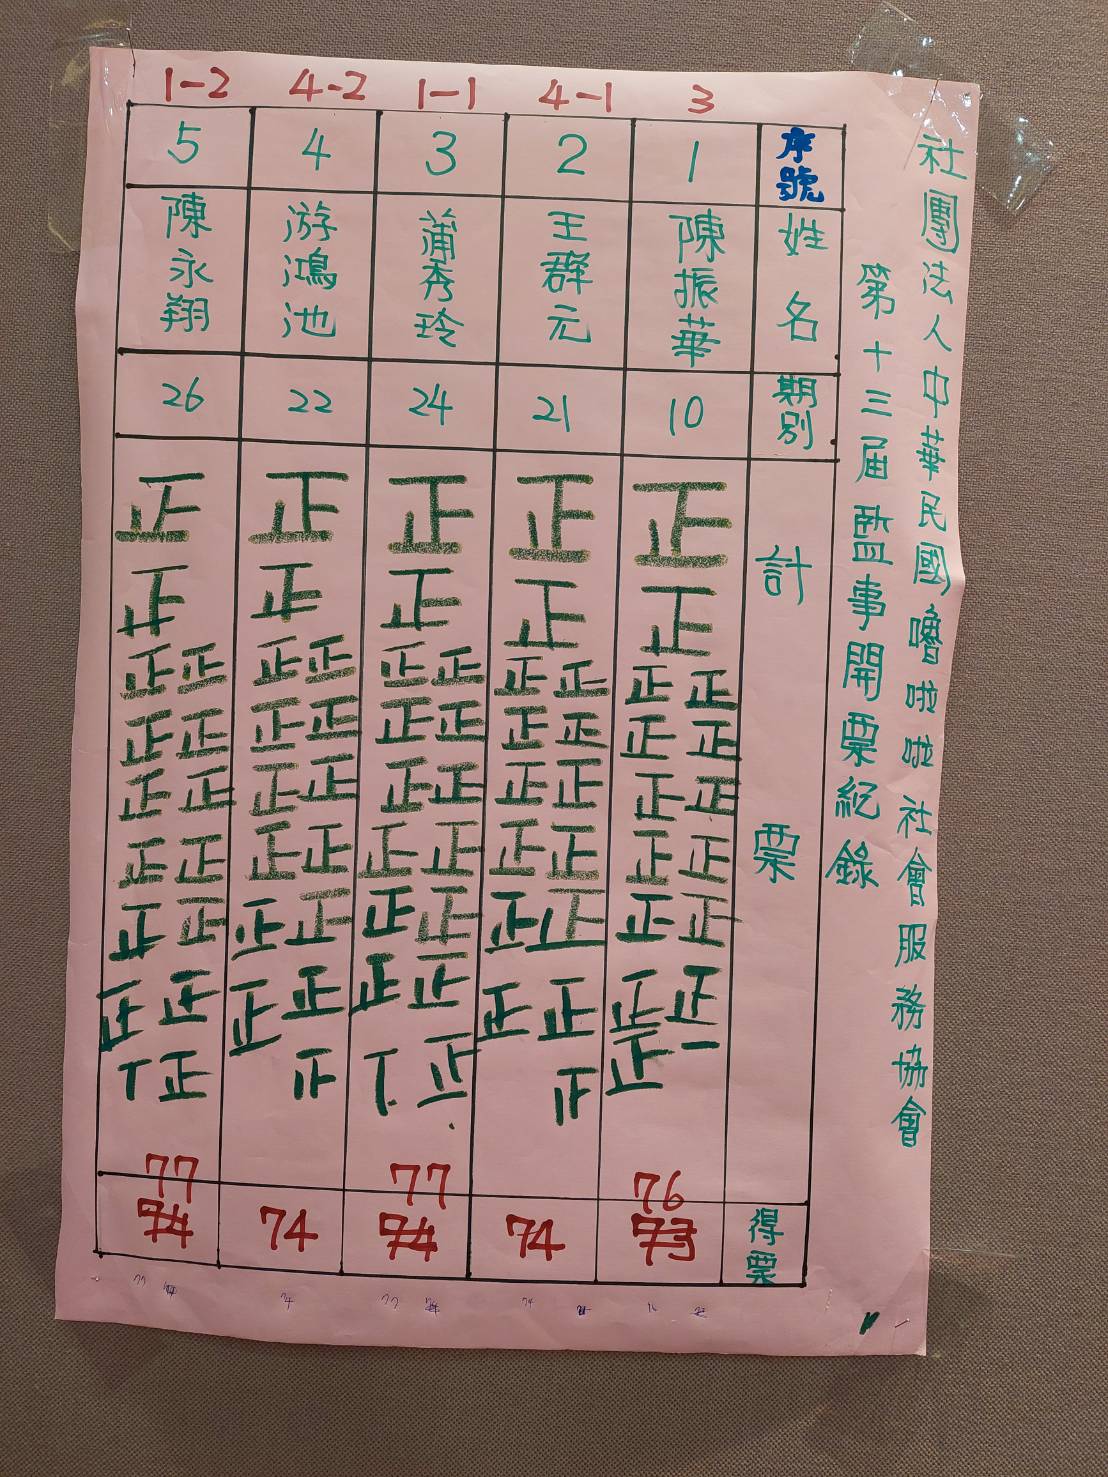 社團法人中華民國嚕啦啦社會服務協會
第十三届監事開票紀錄
1-2 4-2 1-1 4-1 3
5 4 3 2 1 序號
陳永翔 游鴻池 蒲秀玲 王群元 陳振華 姓名
26 22 24 21 10 期別
計票
正 正 正 正 正
正 正 正 正 正
正正 正正 正正 正正 正正
正正 正正 正正 正正 正正
正正 正正 正正 正正 正正
正正 正正 正正 正正 正正
正正 正正 正正 正正 正正
正正 正正 正正 正正 正正
正 正 正 一
77 77 76
74 74 74 74 73 得票